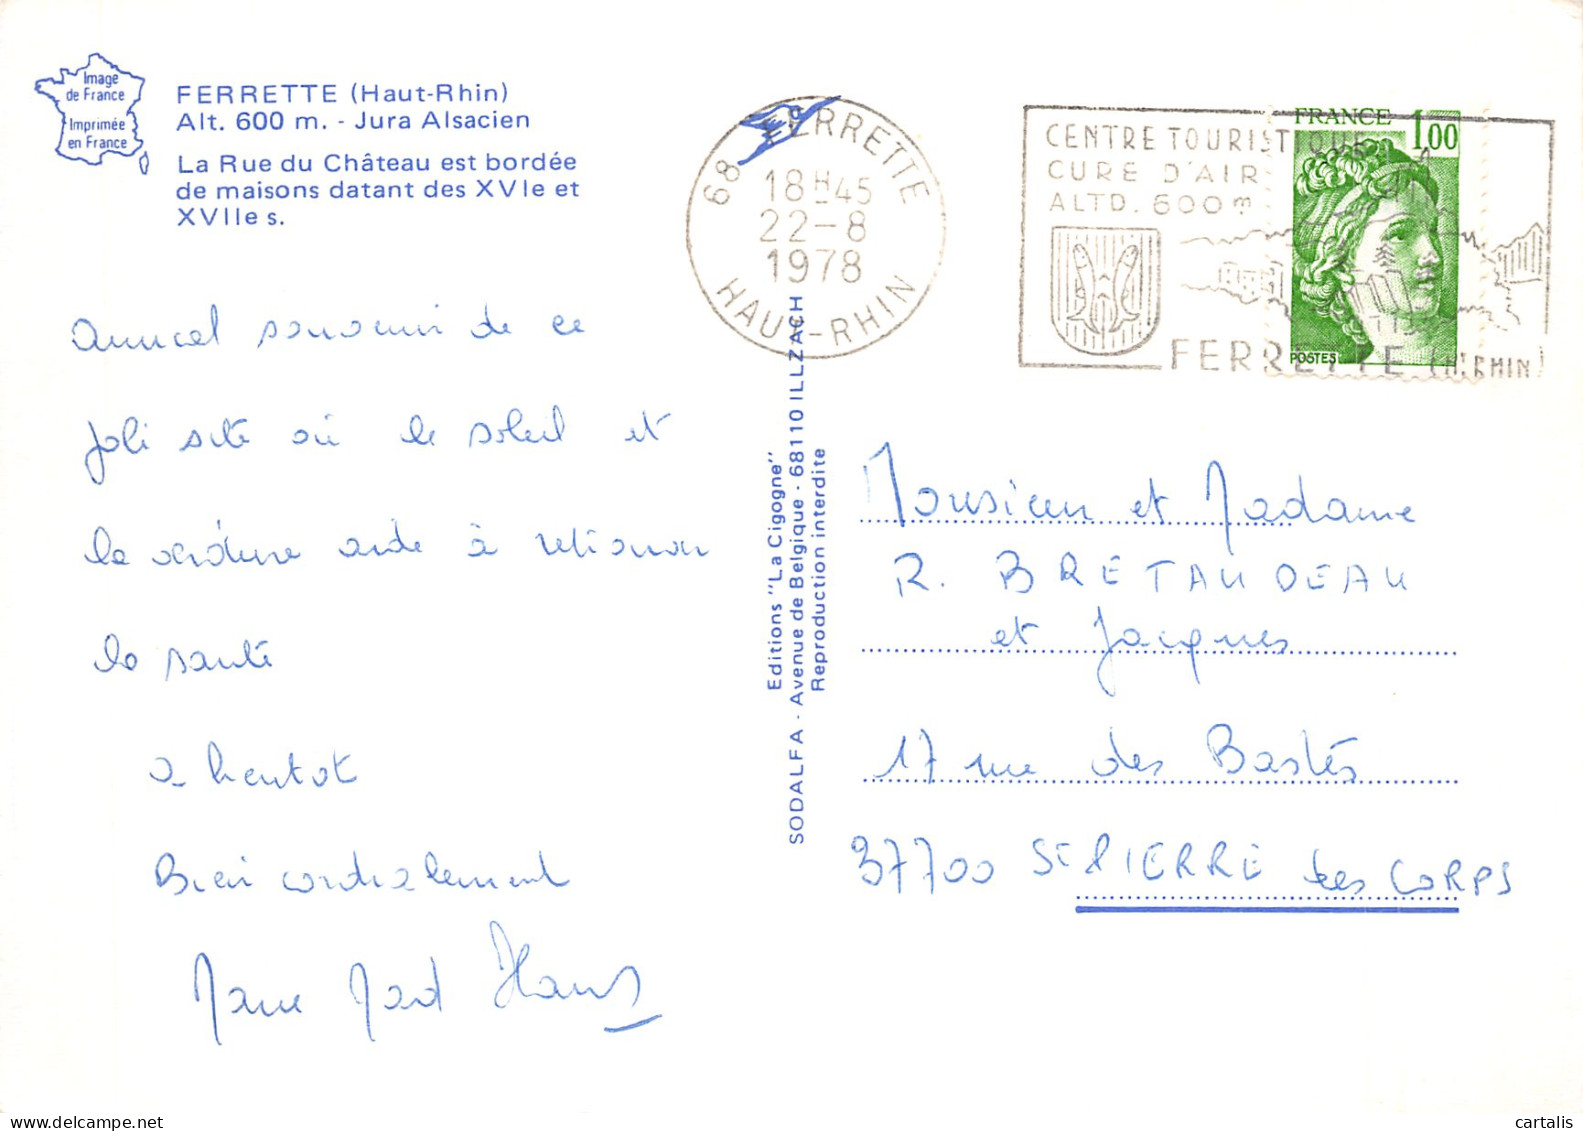 Image
de France
Imprimée
en France
FERRETTE (Haut-Rhin)
Alt. 600 m. - Jura Alsacien
La Rue du Château est bordée
de maisons datant des XVIe et
XVIIe s.
68 FERRETTE
18H45
22-8
1978
HAUT-RHIN
CENTRE TOURISTIQUE
CURE D'AIR
ALTD. 600m
FERRETTE (H.RHIN)
FRANCE
1,00
POSTES
Amical souvenir de ce
joli site où le soleil et
la verdure aide à retrouver
la santé
a bientot
Bien cordialement
Editions "La Cigogne"
SODALFA - Avenue de Belgique - 68110 ILLZACH
Reproduction interdite
Monsieur et Madame
R. BRETAUDEAU
et Jacques
17 rue des Bastés
37700 St PIERRE des CORPS
cartalis